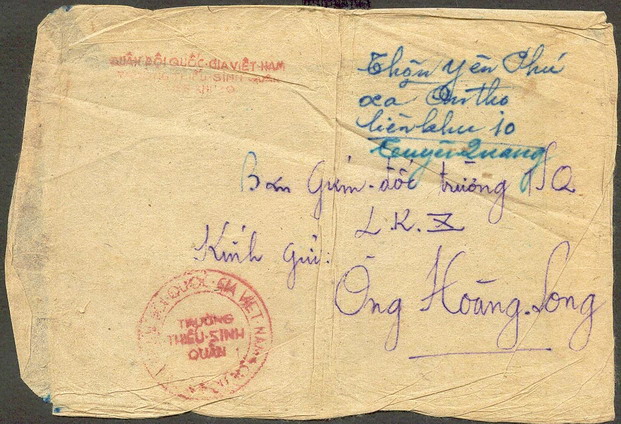 QUÂN ĐỘI QUỐC-GIA VIỆT-NAM
Thôn Yên Phú
liên khu 10
Tuyên Quang
Ban Giám-đốc trường TSQ
L.K. X
Kính gửi:
Ông Hoàng-Long
QUỐC-GIA VIỆT NAM
TRƯỜNG
THIẾU-SINH
QUÂN